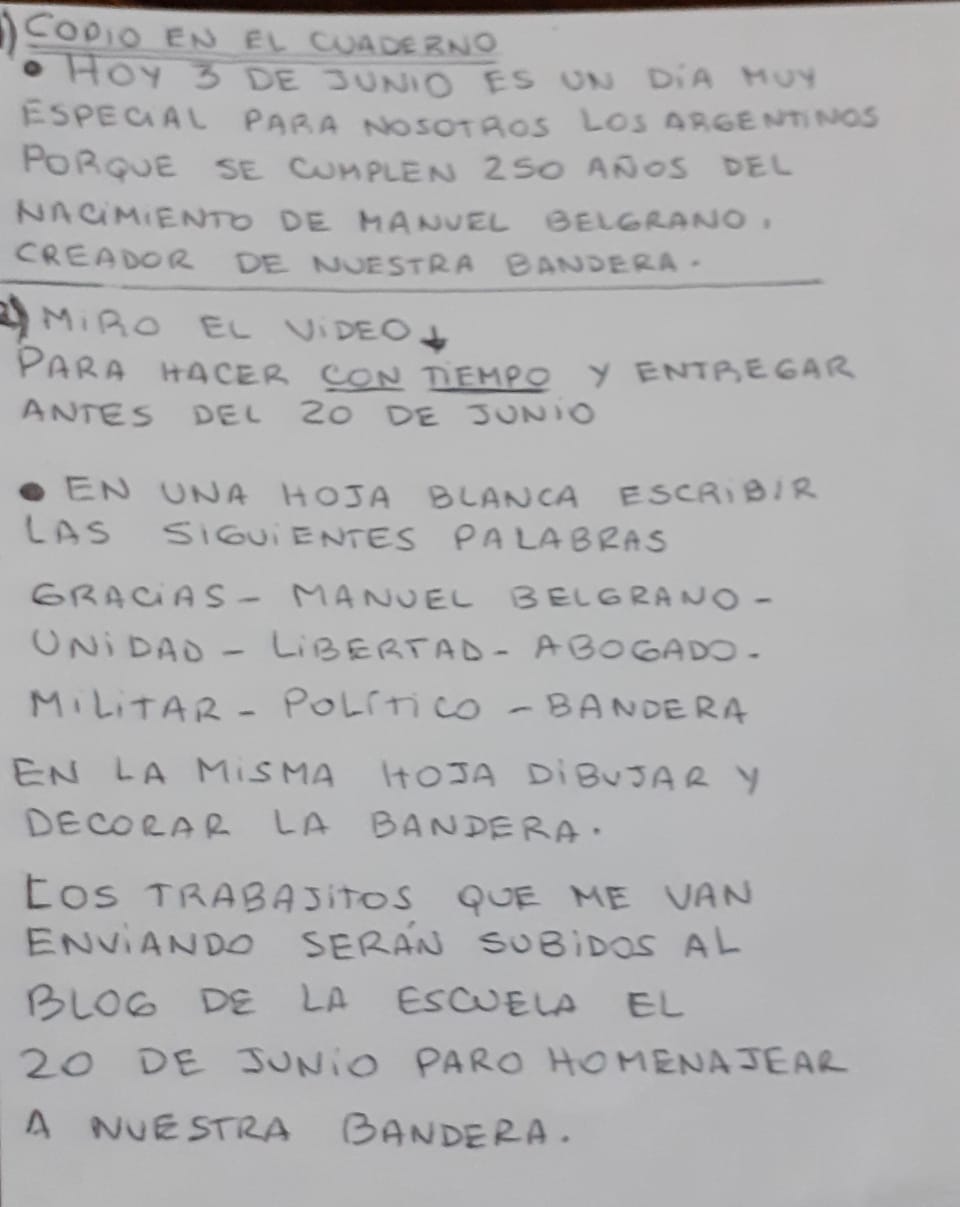 1) COPIO EN EL CUADERNO
• HOY 3 DE JUNIO ES UN DÍA MUY
ESPECIAL PARA NOSOTROS LOS ARGENTINOS
PORQUE SE CUMPLEN 250 AÑOS DEL
NACIMIENTO DE MANUEL BELGRANO,
CREADOR DE NUESTRA BANDERA.
2) MIRO EL VIDEO ↓
PARA HACER CON TIEMPO Y ENTREGAR
ANTES DEL 20 DE JUNIO
• EN UNA HOJA BLANCA ESCRIBIR
LAS SIGUIENTES PALABRAS
GRACIAS - MANUEL BELGRANO -
UNIDAD - LIBERTAD - ABOGADO -
MILITAR - POLÍTICO - BANDERA
EN LA MISMA HOJA DIBUJAR Y
DECORAR LA BANDERA.
LOS TRABAJITOS QUE ME VAN
ENVIANDO SERÁN SUBIDOS AL
BLOG DE LA ESCUELA EL
20 DE JUNIO PARO HOMENAJEAR
A NUESTRA BANDERA.